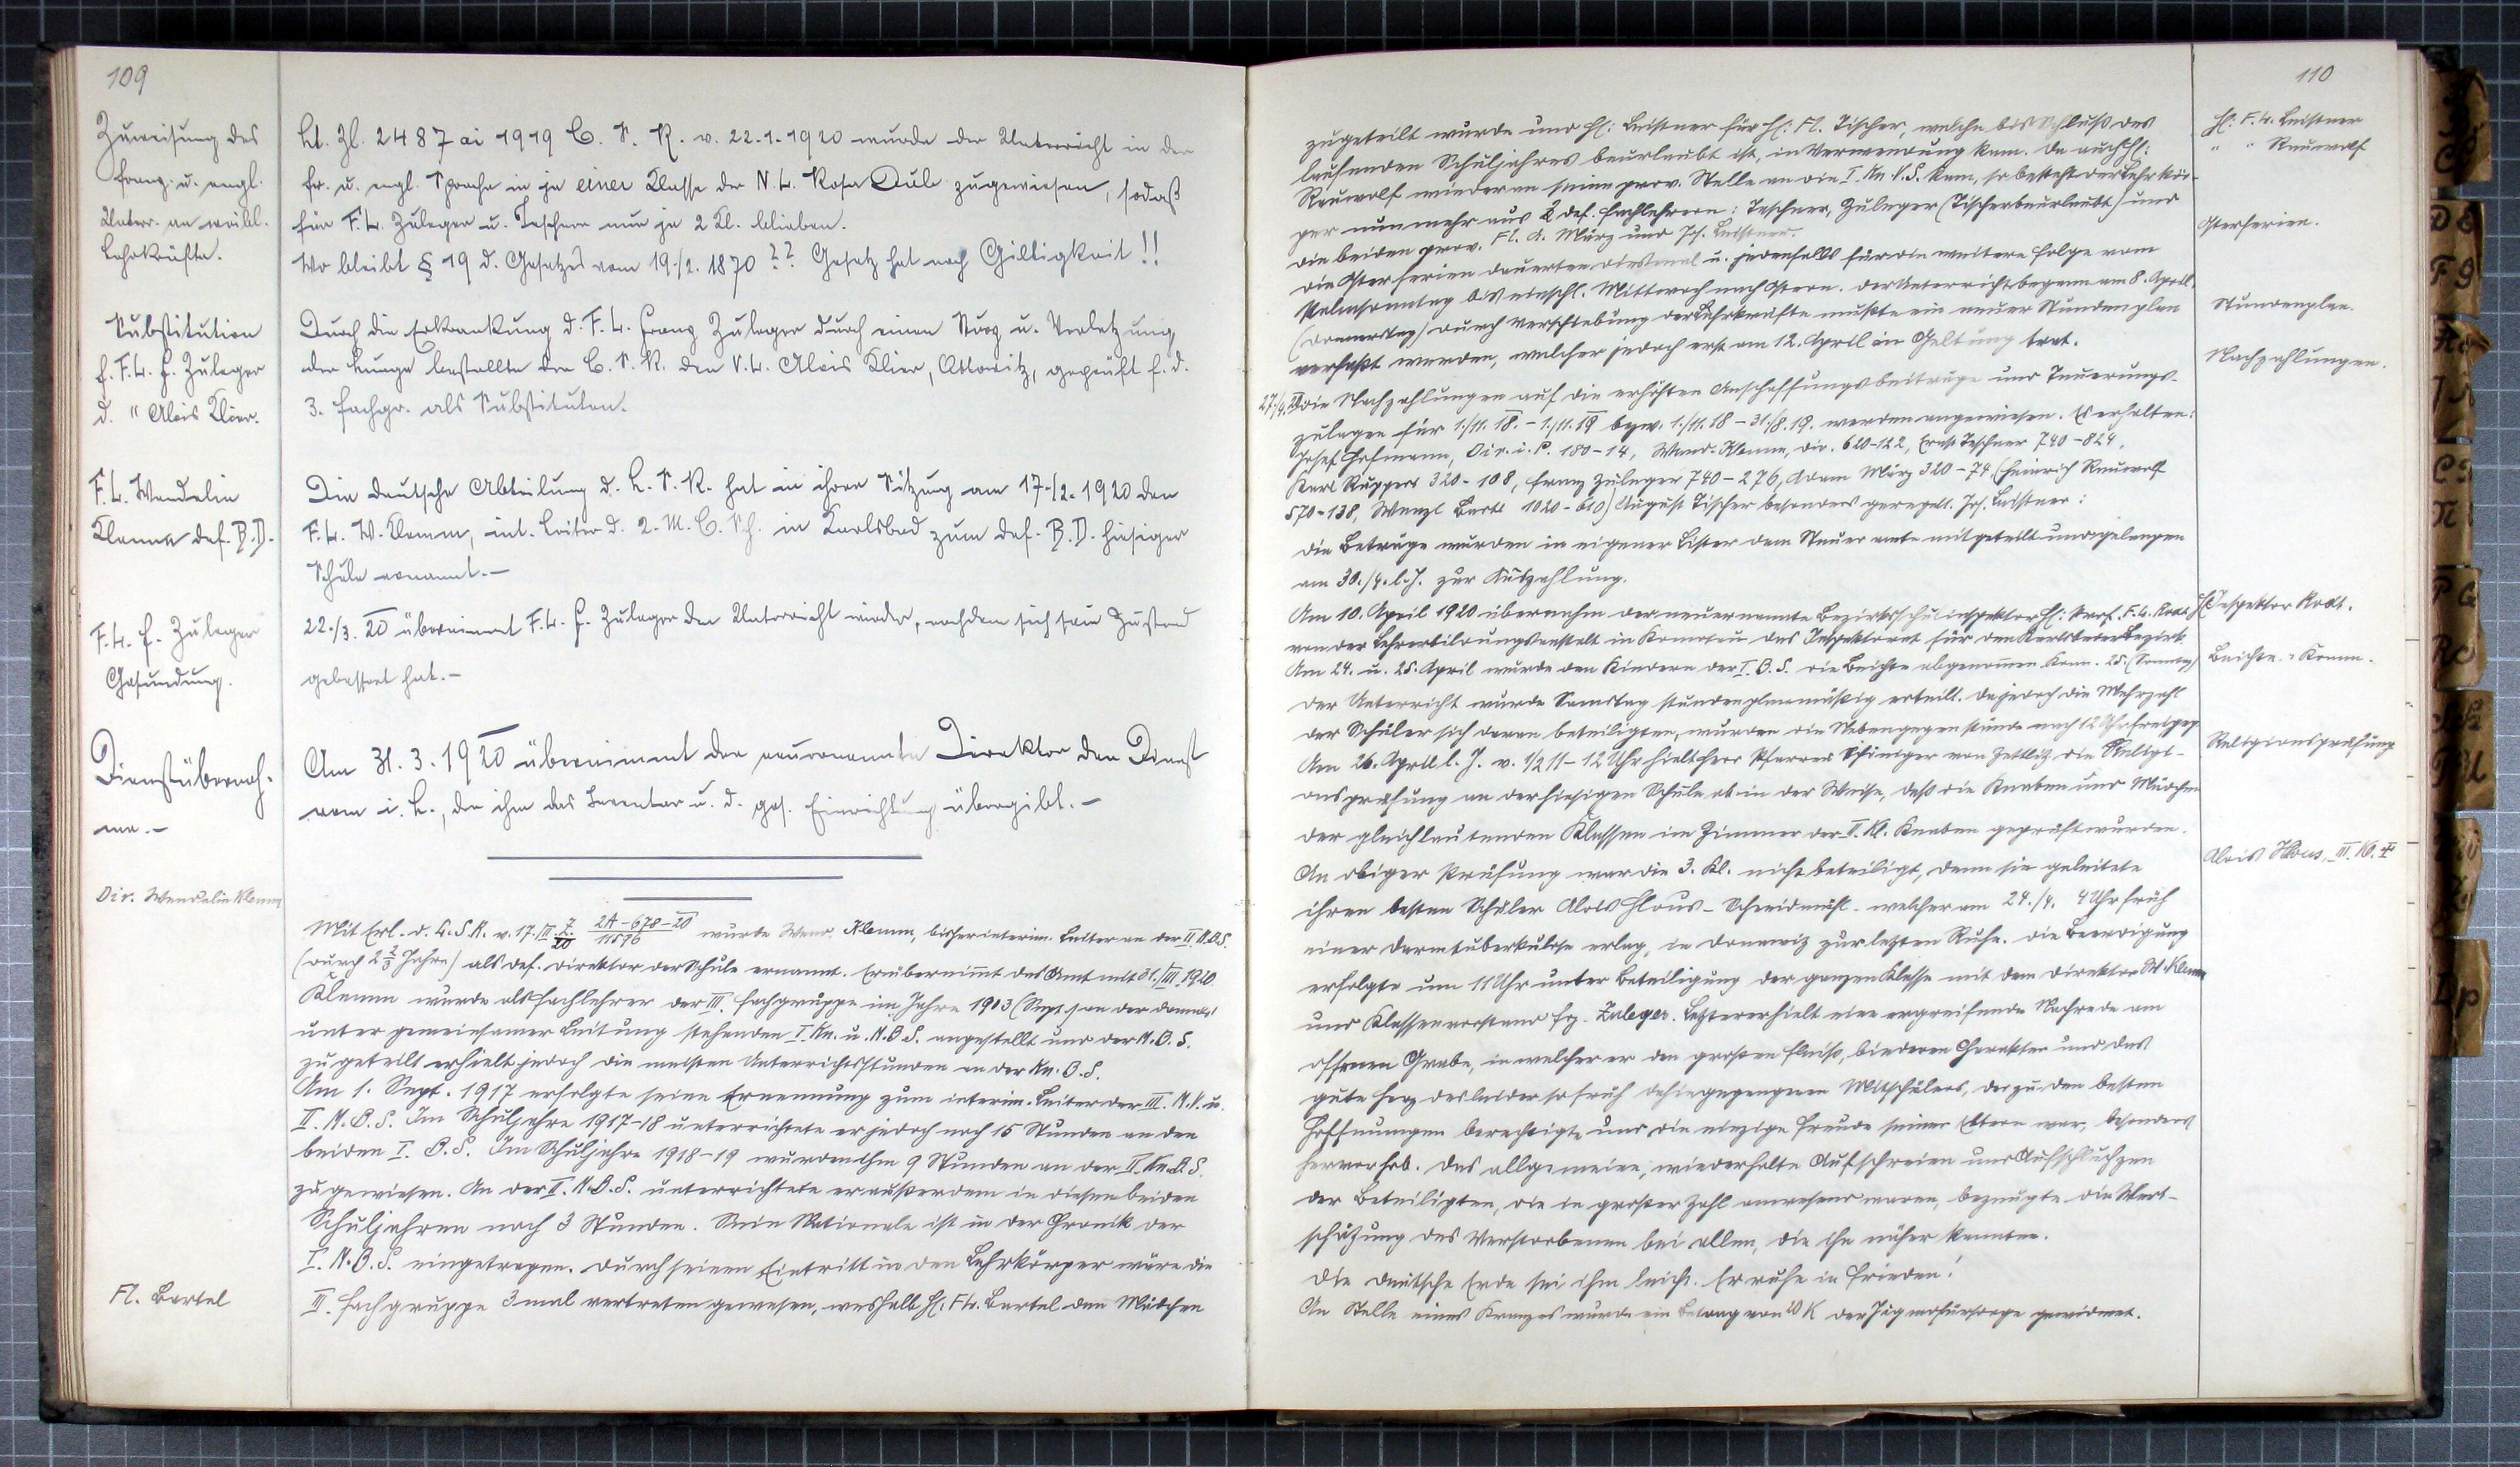 109
Zuweisung des
franz. u. engl.
Unterr. an weibl.
Lehrkräfte.
Lt. Zl. 2487 ai 1919 B. S. R. v. 22.1.1920 wurde der Unterricht in der
fr. u. engl. Sprache in je einer Klasse der N. L. Rosa zugewiesen, sodaß
für F. L. Zuleger u. Teschner nur je 2 Kl. blieben.
Wo bleibt § 19 d. Gesetzes vom 19./2. 1870?? Gesetz hat noch Giltigkeit!!
Substitution
f. F. L. F. Zuleger
d. " Alois Klier.
Durch die Erkrankung d. F. L. Franz Zuleger durch einen Sturz u. Verletzung
der Lunge bestellte der B. S. R. den V. L. Alois Klier, geprüft f. d.
3. Fachgr. als Substituten.
F. L. Wendelin
Klemm def. B. D.
Die deutsche Abteilung d. L. S. R. hat in ihrer Sitzung am 17./2. 1920 den
F. L. W. Klemm, int. Leiter d. 2. M. B. Sch. in Karlsbad zum def. B. D. hiesiger
Schule ernannt.-
F. L. F. Zuleger
Gesundung.
22./3. 20 übernimmt F. L. F. Zuleger den Unterricht wieder, nachdem sich sein Zustand
gebessert hat.-
Dienstübernah-
me.-
Am 31. 3. 1920 übernimmt der neuernannte Direktor den Dienst
vom i. L., der ihm das Inventar u. d. ges. Einrichtung übergibt.-
Dir. Wendelin Klemm
Mit Erl. d. L. S. R. v. 17./III. 20 Z. 2A-678-20 / 11596 wurde Wend. Klemm, bisher interim. Leiter an der II. M. B. S.
(durch 2 2/3 Jahre) als def. Direktor der Schule ernannt. Er übernimmt das Amt mit 31./III. 1920.
Klemm wurde als Fachlehrer der III. Fachgruppe im Jahre 1903 (Sept.) an der damals
unter gemeinsamer Leitung stehenden I. Kn. u. M. B. S. angestellt und der M. B. S.
zugeteilt erhielt jedoch die meisten Unterrichtsstunden an der Kn. B. S.
Am 1. Sept. 1917 erfolgte seine Ernennung zum interim. Leiter der III. M. V. u.
II. M. B. S. Im Schuljahre 1917-18 unterrichtete er jedoch noch 15 Stunden an den
beiden I. B. S. Im Schuljahre 1918-19 wurden ihm 9 Stunden an der II. Kn. B. S.
zugewiesen. An der II. M. B. S. unterrichtete er außerdem in diesen beiden
Schuljahren noch 3 Stunden. Sein Nationale ist in der Chronik der
I. M. B. S. eingetragen. Durch seinen Eintritt in den Lehrkörper wäre die
Fl. Bartel
III. Fachgruppe 3 mal vertreten gewesen, weshalb H: F L. Bartel den Mädchen
110
zugeteilt wurde und H: Leistner für H: Fl. Tischer, welche bis Schluß des
laufenden Schuljahres beurlaubt ist, in Verwendung kam. Da auch H:
Rauwolf wieder an seine prov. Stelle an die I. Kn. V. S. kam, so besteht der Lehrkör-
per nunmehr aus 2 def. Fachlehrern: Teschner, Zuleger (Tischer beurlaubt) und
die beiden prov. Fl. A. März und Jos. Leistner.
H: F. L. Leistner
" " Rauwolf
Osterferien.
Die Osterferien dauerten diesmal u. jedenfalls für die weitere Folge vom
Palmsonntag bis einschl. Mittwoch nach Ostern. Der Unterricht begann am 8. April.
(Donnerstag) Durch Verschiebung der Lehrkräfte mußte ein neuer Stundenplan
verfaßt werden, welcher jedoch erst am 12. April in Geltung trat.
Stundenplan.
Nachzahlungen.
27./4. 20 Die Nachzahlungen auf die erhöhten Anschaffungsbeiträge und Teuerungs-
zulagen für 1./11. 18. - 1./11. 19 bzw. 1./11. 18 - 31./8. 19. werden angewiesen. Es erhalten:
Josef Hofmann, Dir. i. P. 180-14, Wend. Klemm, Dir. 620-122, Ernst Teschner 740-824,
Karl Ruppert 320-108, Franz Zuleger 740-276, Adam März 320-74 (Heinrich Rauwolf
570-138, Wenzl Bartl 1020-610) August Tischer besonders geregelt. Jos. Leistner:
Die Beträge wurden in eigener Liste dem Steueramte mitgeteilt und gelangen
am 30./4. l. J. zur Auszahlung.
Am 10. April 1920 übernahm der neuernannte Bezirksschulinspektor H: Prof. F. L.
von der Lehrerbildungsanstalt in Komotau das Inspektorat für den Karlsbader Bezirk
H: Inspektor
Am 24. u. 25. April wurde den Kindern der I. B. S. die Beichte abgenommen. Komm. 25. (Sonntag)
Beichte u. Komm.
Der Unterricht wurde Samstag stundenplanmäßig erteilt. Da jedoch die Mehrzahl
der Schüler sich daran beteiligten, wurden die Nebengegenstände nach 12 Uhr freigeg.
Am 26. April l. J. v. 1/2 11-12 Uhr hielt Herr Pfarrer von Zettlitz die Religi-
onsprüfung an der hiesigen Schule ab in der Weise, daß die Knaben und Mädchen
der gleichlautenden Klassen im Zimmer der II. Kl. Knaben geprüft wurden.
Religionsprüfung
Alois Hlous, III. Kl. †
An obiger Prüfung war die 3. Kl. nicht beteiligt, denn sie geleitete
ihren besten Schüler Alois Hlous - Schneidmühl - welcher am 24./4. 4 Uhr früh
einer Darmtuberkulose erlag, in Donawitz zur letzten Ruhe. Die Beerdigung
erfolgte um 11 Uhr unter Beteiligung der ganzen Klasse mit dem Direktor W. Klemm
und Klassenvorstand Frz. Zuleger. Letzterer hielt eine ergreifende Nachrede am
offenen Grabe, in welcher er den großen Fleiß, biederen Charakter und das
gute Herz des leider so früh dahingegangenen Mitschülers, der zu den besten
Hoffnungen berechtigte und die einzige Freude seiner Eltern war, besonders
hervorhob. Das allgemeine, wiederholte Aufschreien und Aufschluchzen
der Beteiligten, die in großer Zahl anwesend waren, bezeugte die Wert-
schätzung des Verstorbenen bei allen, die ihn näher kannten.
Die deutsche Erde sei ihm leicht. Er ruhe in Frieden!
An Stelle eines Kranzes wurde ein Betrag von 20 K der Jugendfürsorge gewidmet.